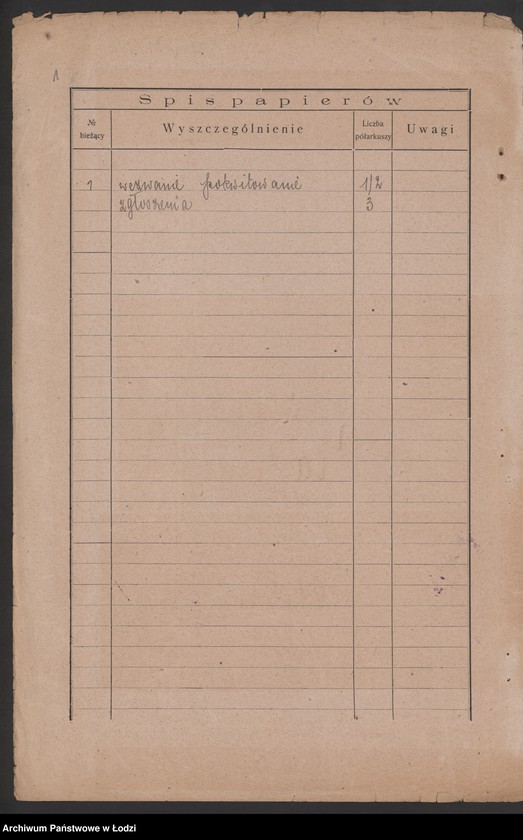 1
Spis papierów
№ bieżący
Wyszczególnienie
Liczba półarkuszy
Uwagi
1 wezwanie pokwitowanie 1/2
zgłoszenia 3
Archiwum Państwowe w Łodzi